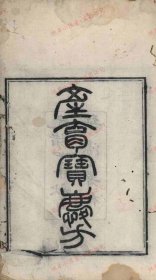 產育寶慶方